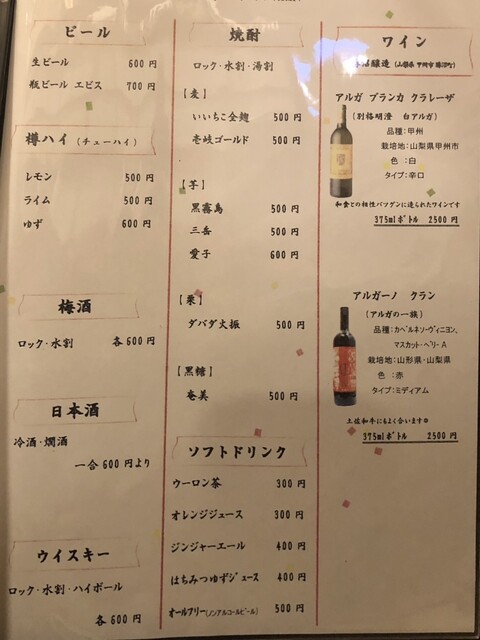 ビール
生ビール 600 円
瓶ビール エビス 700 円
樽ハイ (チューハイ)
レモン 500 円
ライム 500 円
ゆず 600 円
梅酒
ロック・水割 各 600 円
日本酒
冷酒・燗酒
一合 600 円より
ウイスキー
ロック・水割・ハイボール
各 600 円
焼酎
ロック・水割・湯割
【麦】
いいちこ全麹 500 円
壱岐ゴールド 500 円
【芋】
黒霧島 500 円
三岳 500 円
愛子 600 円
【栗】
ダバダ火振 500 円
【黒糖】
奄美 500 円
ソフトドリンク
ウーロン茶 300 円
オレンジジュース 300 円
ジンジャーエール 400 円
はちみつゆずジュース 400 円
オールフリー(ノンアルコールビール) 500 円
ワイン
醸造 (山梨県 甲州市 勝沼町)
アルガ ブランカ クラレーザ
(別格明澄 白アルガ)
品種：甲州
栽培地：山梨県甲州市
色 ：白
タイプ：辛口
和食との相性バツグンに造られたワインです
375mlボトル 2500 円
アルガーノ クラン
(アルガの一族)
品種：カベルネソーヴィニヨン、
マスカット・ベリーA
栽培地：山形県・山梨県
色 ：赤
タイプ：ミディアム
土佐和牛にもよく合います
375mlボトル 2500 円